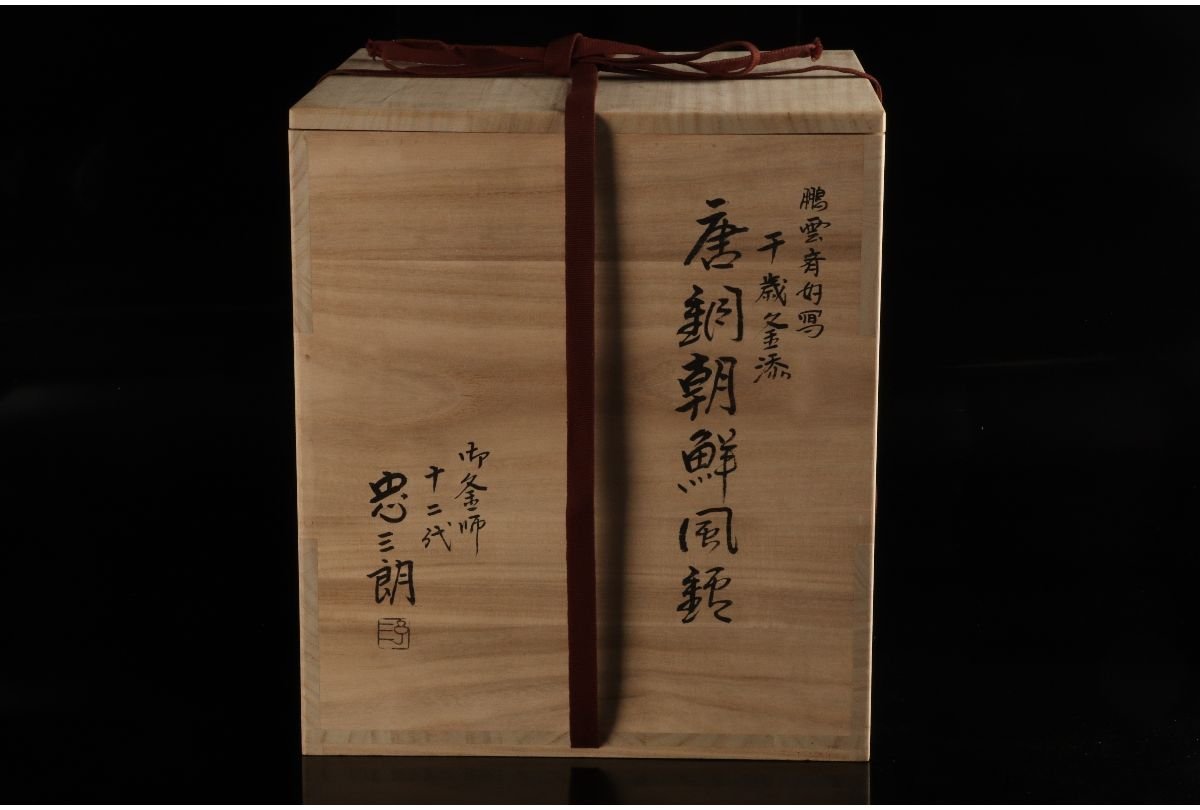 鵬雲斎好写
千歳釜添
唐銅朝鮮風鑪
御釜師
十二代
忠三朗